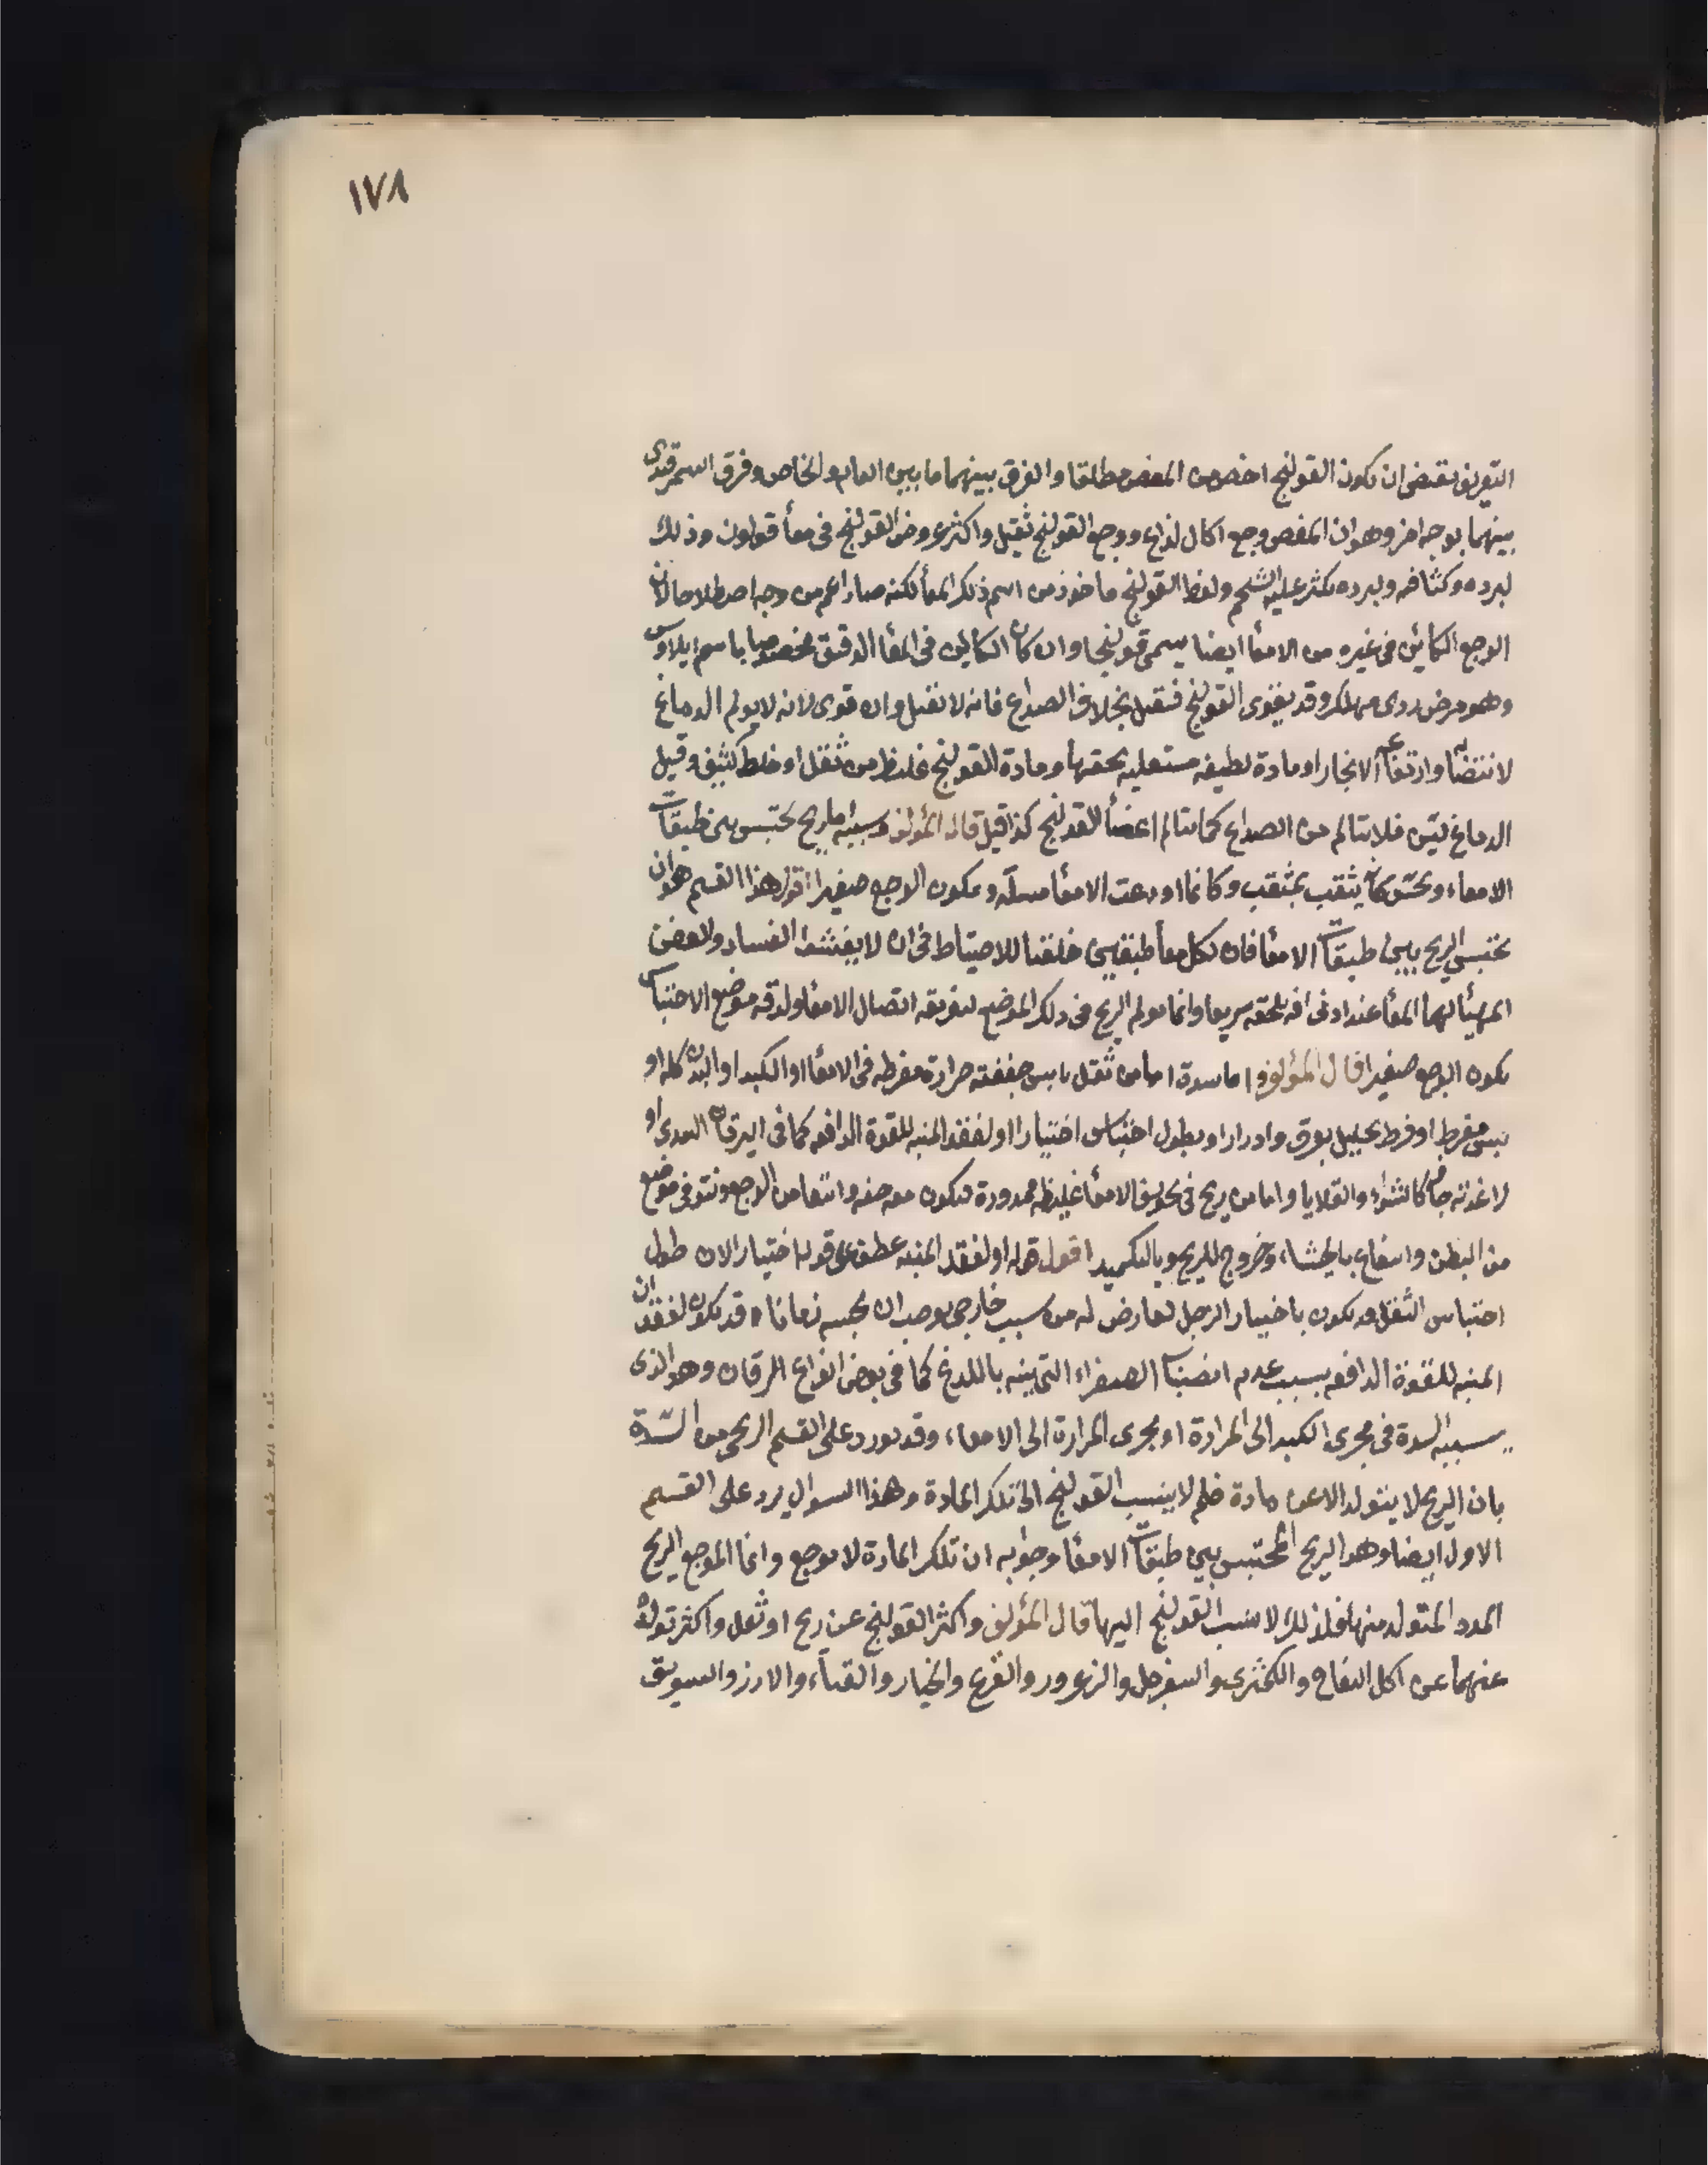 ١٧٨
التعريف يقتضى ان يكون القولنج اخص من المغص مطلقا والفرق بينهما ما بين العام والخاص وفرق السمرقندى
بينهما بوجه اخر وهو ان المغص وجع اكال لذاع ووجع القولنج ثقيل واكثر عروض القولنج فى معأ قولون وذلك
لبرده وكثافه ولبرده يكثر عليه الشحم ولفظ القولنج ماخوذ من اسم ذلك المعأ لكنه صار اعم من وجه اصطلاحا لان
الوجع الكائن فى غيره من الامعأ ايضا يسمى قولنجا وان كان الكائن فى المعأ الدقيق مخصوصا باسم ايلاوس
وهو مرض ردى مهلك وقد يقوى القولنج فيقتل بخلاف الصداع فانه لا يقتل وان قوى لانه لا يولم الدماغ
لانتضا وارتفاع الابخار او مادة لطيفه مستعليه بحقها ومادة القولنج غليظ من ثفل او خلط كثيف وقيل
الدماغ لين فلا يتالم من الصداع كما يتالم اعضأ القولنج كذا قيل قال المؤلف وسببه اما ريح تحتبس بين طبقات
الامعاء ويحس كأن يثقب بمثقب وكانما اودعت الامعأ مسلّه ويكون الوجع صغيرا اقول هذا القسم هو ان
تحتبس الريح بين طبقات الامعأ فان لكل معأ طبقتين خلقتا للاحتياط فى ان لا يفشوا الفساد والعفن
المهيأ لهما المعأ عند ادنى افه تلحقه سريعا وانما يولم الريح فى ذلك الموضع لتفريقه اتصال الامعأ ولدقه موضع الاحتباس
يكون الوجع صغيرا قال المؤلف واما سدة اما من ثفل يابس جففته حرارة مفرطه فى الامعأ او الكبد او البدن كله او
يبس مفرط او فرط تحليل بعرق وادرار او بطول احتباس اختيارا او لفقد المنبه للقوة الدافعه كما فى اليرقان السدى او
لاغذيه جافه كالشواء والقلايا واما من ريح فى تجويف الامعأ غليظه ممدودة فيكون معه وانتفا من الوجع ونتو فى موضع
من البطن وانتفاع بالجشاء وخروج للريح وبالتكميد اقول قوله او لفقد المنبه عطف على قوله اختيار الان طول
احتباس الثفل قد يكون باختيار الرجل لعارض له من سبب خارجى يوجب ان يحبسه زمانا وقد يكون لفقدان
المنبه للقوة الدافعه بسبب عدم انصباب الصفراء التى ينبه باللذع كما فى بعض انواع اليرقان وهو الذى
سببه السدة فى مجرى الكبد الى المرارة او مجرى المرارة الى الامعاء وقد يورد على القسم الريحى من السّدة
بان الريح لا يتولد الا عن مادة فلم لا ينسب القولنج الى تلك المادة وهذا السوال يرد على القسم
الاول ايضا وهو الريح المحتبس بين طبقات الامعأ وجوابه ان تلك المادة لا توجع وانما الموجع الريح
الممدد المتولد منها فلذلك لا ينسب القولنج اليها قال المؤلف واكثر القولنج عن ريح او ثفل واكثر تولده
عنهما عن اكل التفاح والكمثرى والسفرجل والزعرور والقرع والخيار والقثاء والارز والسويق